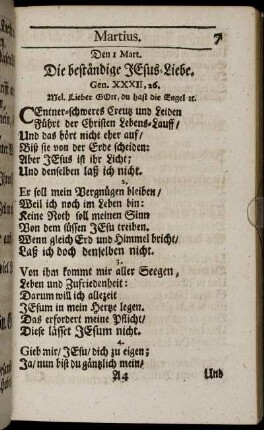 Martius. 7
Den 1 Mart.
Die beständige JEsus-Liebe.
Gen. XXXII, 26.
Mel. Lieber GOtt, du hast die Engel ꝛc.
CEntner-schweres Creutz und Leiden
Führt der Christen Lebens-Lauff/
Und das hört nicht eher auf/
Biß sie von der Erde scheiden:
Aber JEsus ist ihr Licht;
Und denselben laß ich nicht.
2.
Er soll mein Vergnügen bleiben/
Weil ich noch im Leben bin:
Keine Noth soll meinen Sinn
Von dem süssen JEsu treiben.
Wenn gleich Erd und Himmel bricht/
Laß ich doch denselben nicht.
3.
Von ihm kommt mir aller Seegen,
Leben und Zufriedenheit:
Darum will ich allezeit
JEsum in mein Hertze legen.
Das erfordert meine Pflicht/
Diese lässet JEsum nicht.
4.
Gieb mir/ JEsu/ dich zu eigen;
Ja/ nun bist du gäntzlich mein/
A4 Und